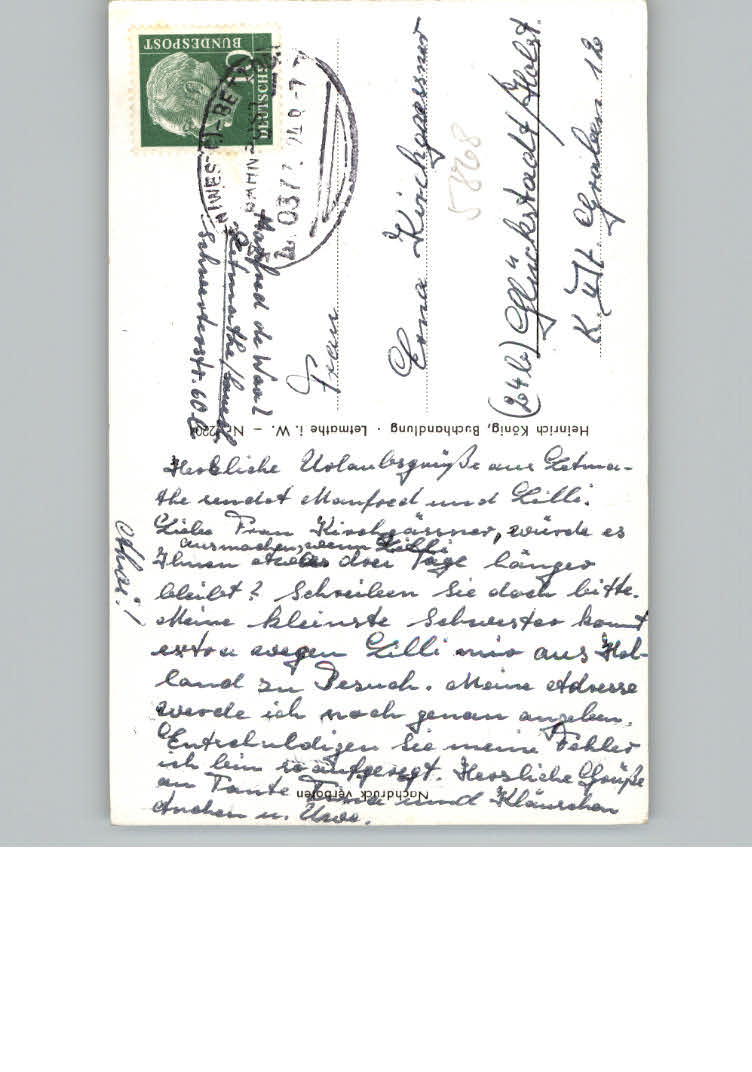 DEUTSCHE
BUNDESPOST
10
Manfred de Waal
Letmathe/Sauerl
Schwerterstr. 60
Frau
Erna Kirchgaessner
(24b) Glückstadt/Holst.
Graben 12
5868
Heinrich König, Buchhandlung · Letmathe i. W. – Nr.
Herzliche Urlaubsgrüße aus Letma-
the sendet Manfred und Lilli.
Liebe Frau Kirchgässner, würde es
Ihnen etwas ausmachen, wenn Lilli
drei Tage länger
bleibt? Schreiben Sie doch bitte.
Meine kleinste Schwester kommt
extra wegen Lilli mir aus Hol-
land zu Besuch. Meine Adresse
werde ich noch genau angeben.
Entschuldigen Sie meine Fehler
ich bin so aufgeregt. Herzliche Grüße
an Tante und Kläuschen
u. Uwe.
Nachdruck verboten